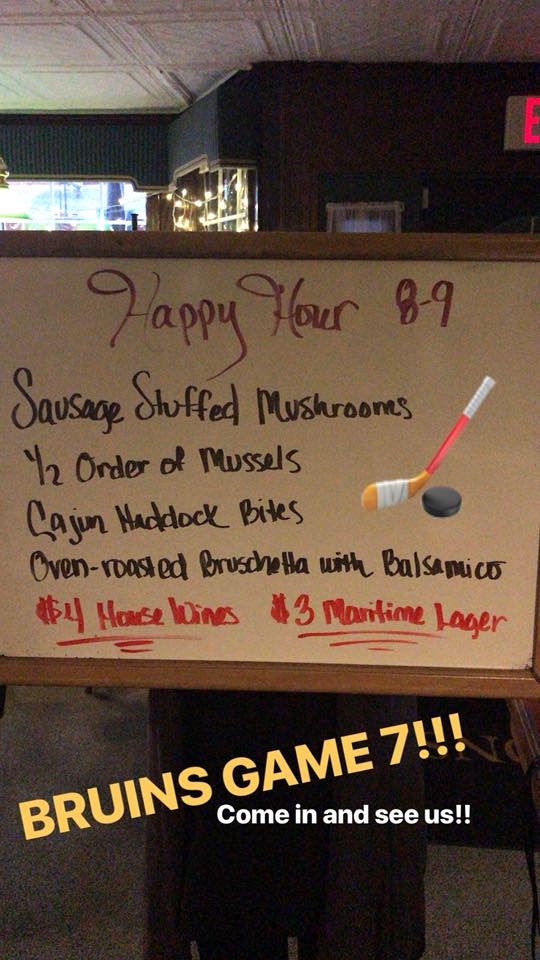 E
Happy Hour 8-9
Sausage Stuffed Mushrooms
1/2 Order of Mussels
Cajun Haddock Bites
Oven-roasted Bruschetta with Balsamico
$4 House Wines $3 Maritime Lager
BRUINS GAME 7!!!
Come in and see us!!